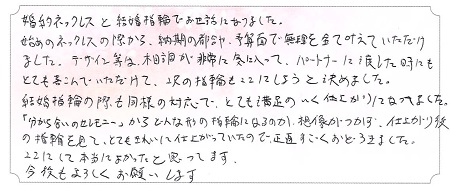 婚約ネックレスと結婚指輪でお世話になりました。
始めのネックレスの際から、納期の都合や予算面で無理を全て叶えていただけ
ました。デザイン等は、相談が非常に気に入って、パートナーに渡した時にも
とても喜こんでいただけて、次の指輪もここにしようと決めました。
結婚指輪の際も同様の対応で、とても満足のいく仕上がりになってました。
「分かち合いのセレモニー」からどんな形の指輪になるのか、想像がつかず、仕上がり後
の指輪を見て、とてもきれいに仕上がっていたので、正直すごくおどろきました。
ここにして本当によかったと思ってます。
今後もよろしくお願いします